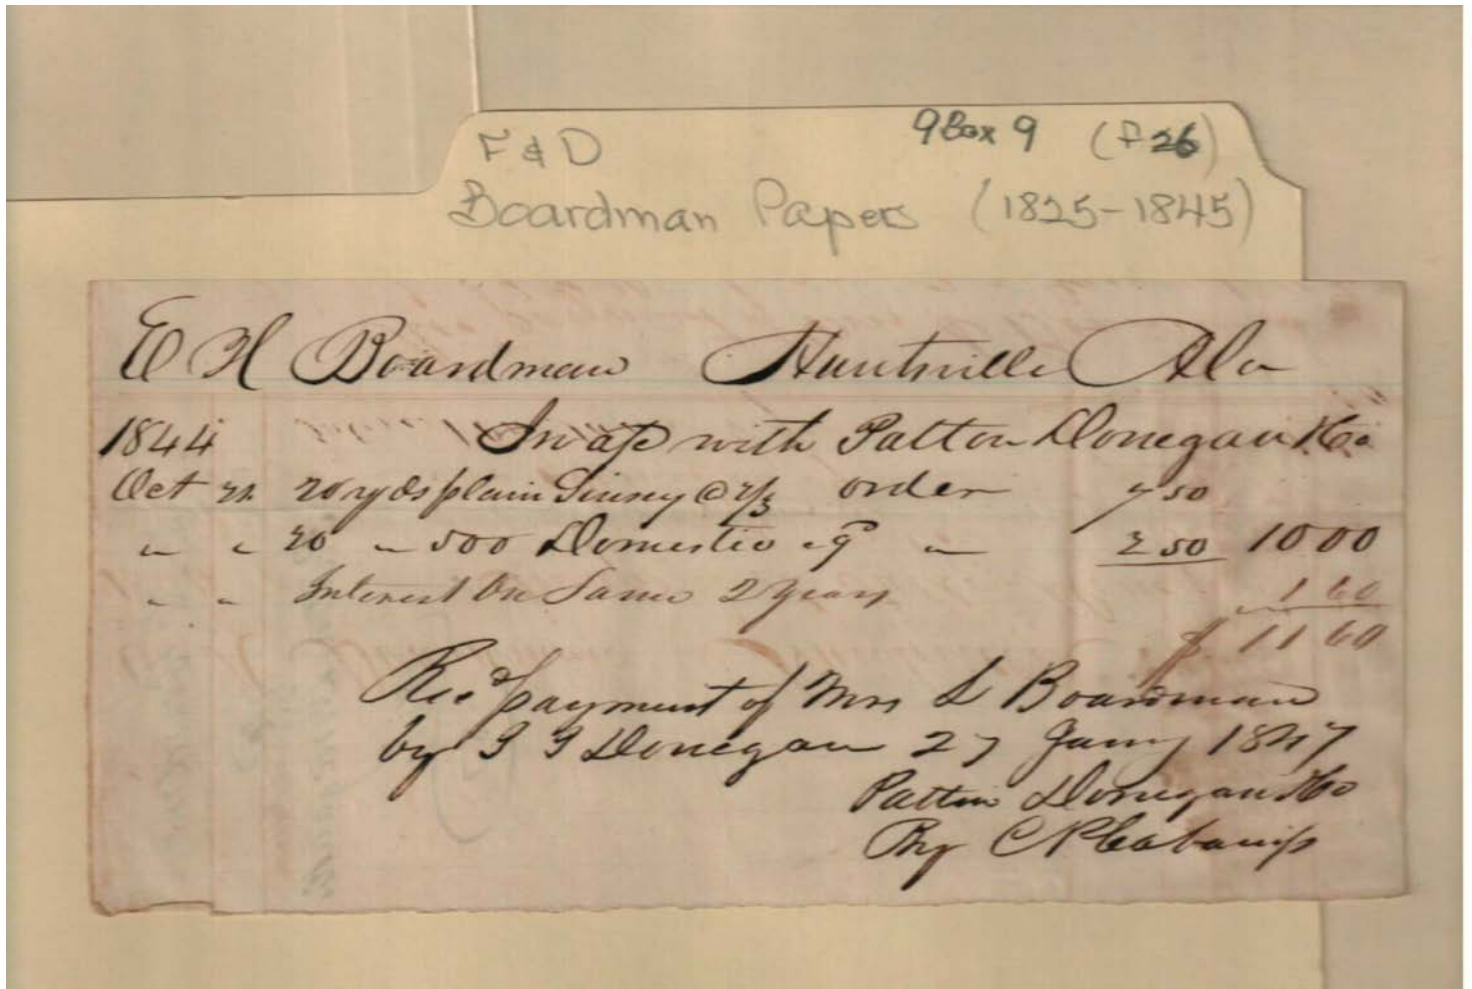 F & D 9 Box 9 (F 26)
Boardman Papers (1825-1845)
E H Boardman Huntsville Ala
1844 In a/c with Patton Donegan & Co
Oct 22 20 yds plain Linsey @ order 7 50
" " 20 " 500 Domestic " 2 50 10 00
" " Interest on Same 2 years 1 60
$ 11 60
Recd payment of Mrs L Boardman
by Donegan 27 Jany 1847
Patton Donegan & Co
By C Cabaniss